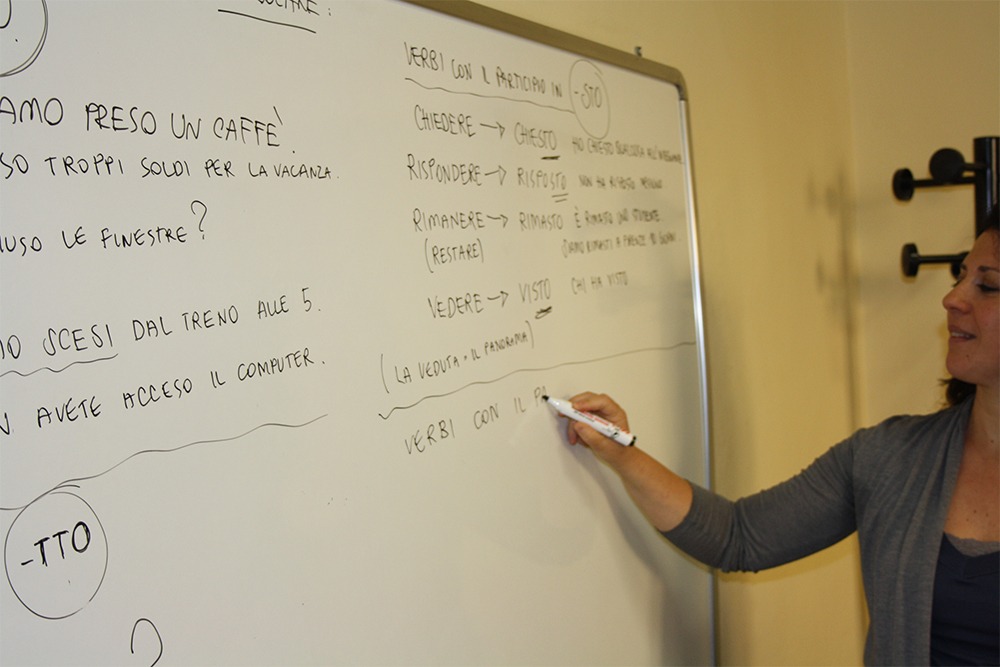 AMO PRESO UN CAFFÈ
SO TROPPI SOLDI PER LA VACANZA.
IUSO LE FINESTRE?
MO SCESI DAL TRENO ALLE 5.
N AVETE ACCESO IL COMPUTER.
-TTO
VERBI CON IL PARTICIPIO IN -STO
CHIEDERE → CHIESTO HO CHIESTO QUALCOSA ALL'INSEGNANTE
RISPONDERE → RISPOSTO NON HA RISPOSTO NESSUNO
RIMANERE → RIMASTO È RIMASTO UNO STUDENTE
(RESTARE) SIAMO RIMASTI A FIRENZE 10 GIORNI.
VEDERE → VISTO CHI HA VISTO
(LA VEDUTA = IL PANORAMA)
VERBI CON IL PA